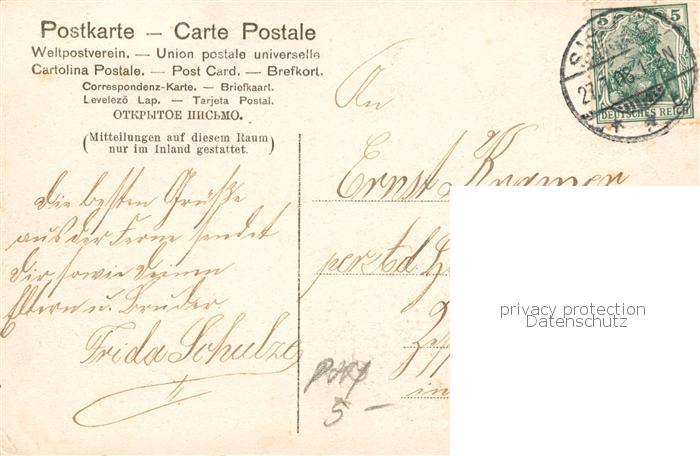 Postkarte — Carte Postale
Weltpostverein. — Union postale universelle
Cartolina Postale. — Post Card. — Brefkort.
Correspondenz-Karte. — Briefkaart.
Levelező Lap. — Tarjeta Postal.
ОТКРЫТОЕ ПИСЬМО.
(Mitteilungen auf diesem Raum
nur im Inland gestattet.)
5 5
DEUTSCHES REICH
An
Ernst Kramer
die besten Grüße
aus der Ferne sendet
dir sowie deinen
Eltern u. Bruder
Frida Schulze
in
5 —
privacy protection
Datenschutz